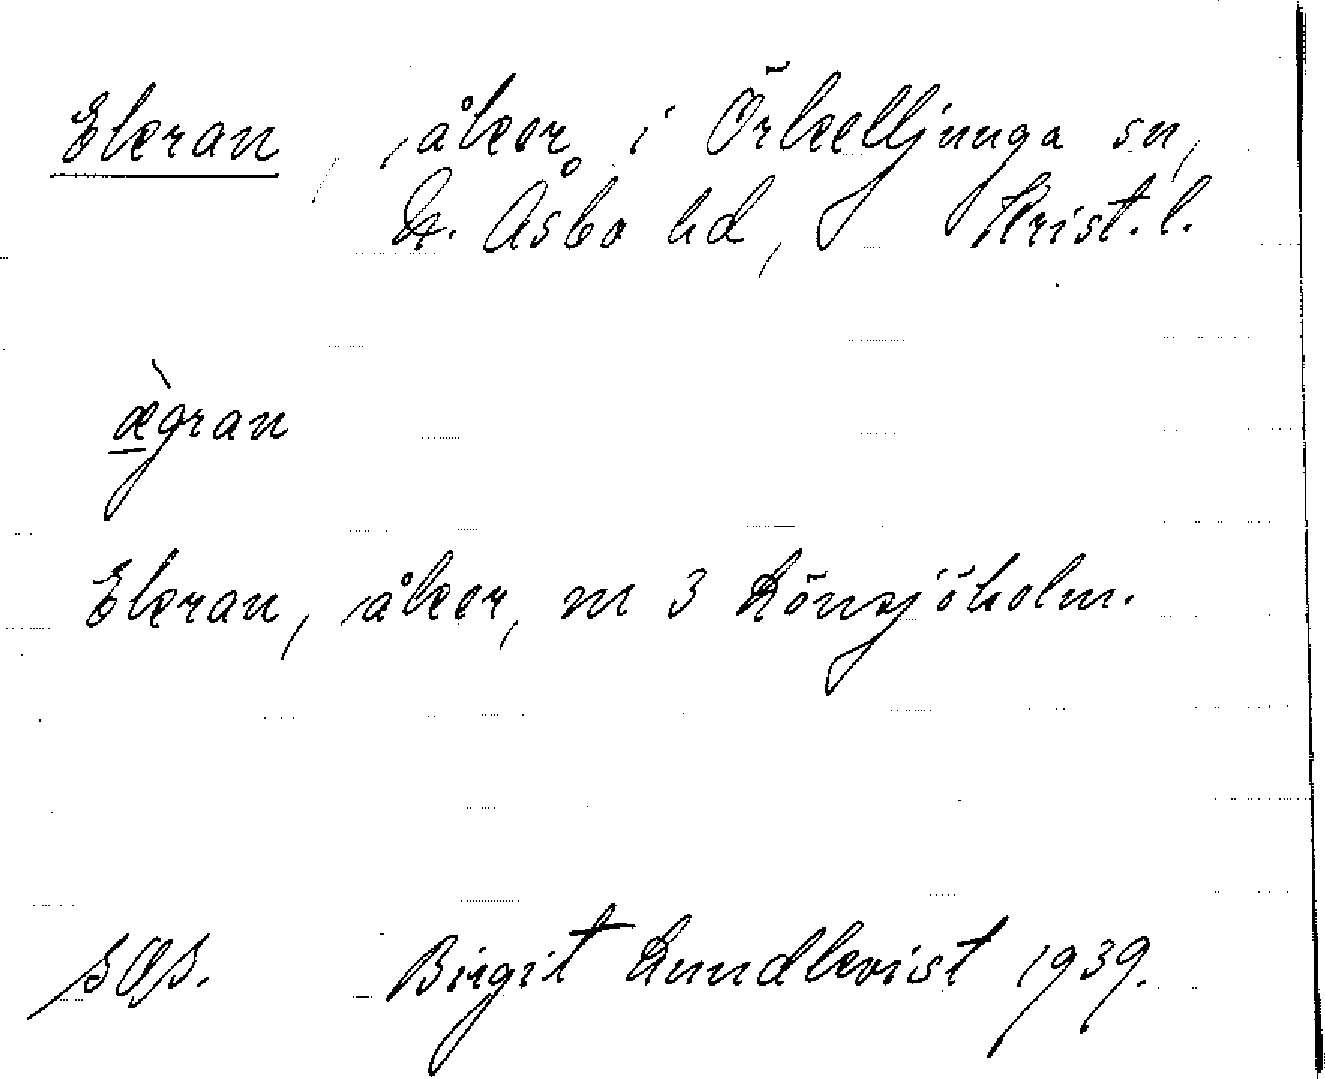 Ekran, åker i Örkelljunga sn,
N. Åsbo hd, Krist. l.
ægran
Ekran, åker, m 3 Lönsjöholm.
Birgit Lundkvist 1939.